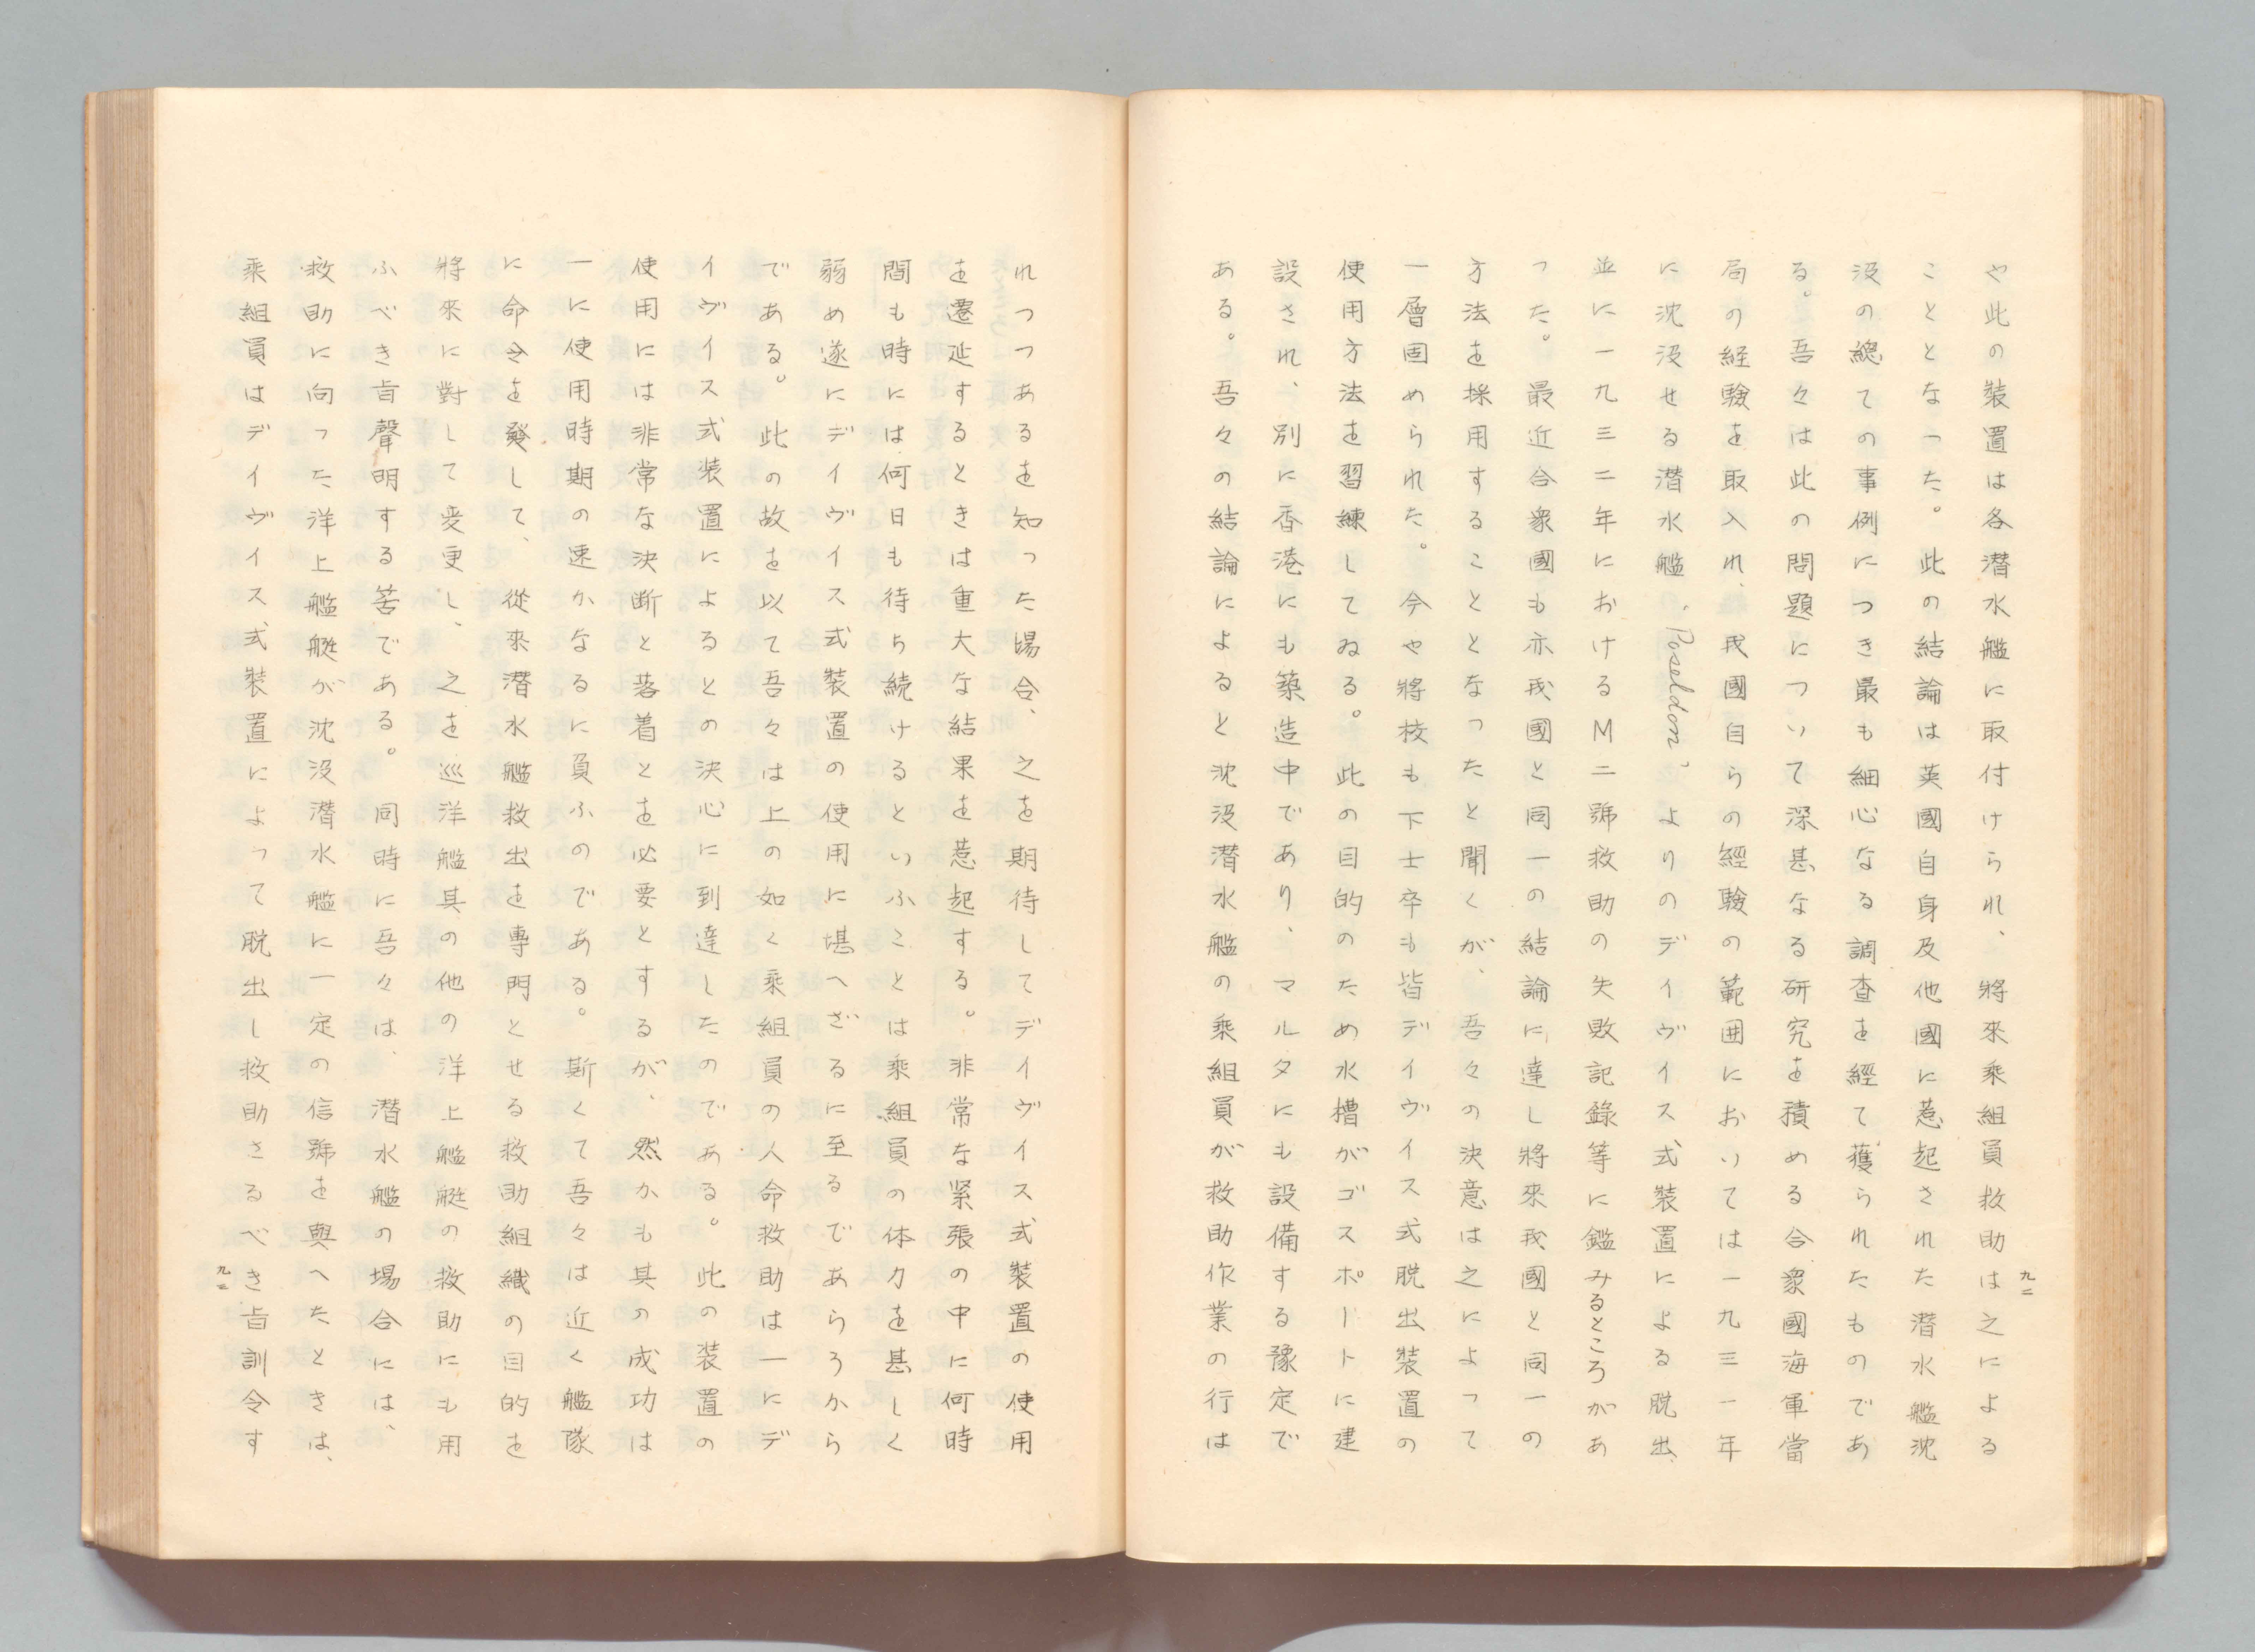 九二
や此の裝置は各潜水艦に取付けられ、將來乘組員救助は之による
こととなった。此の結論は英國自身及他國に惹起された潜水艦沈
没の總ての事例につき最も細心なる調査を經て獲られたものであ
る。吾々は此の問題について深甚なる研究を積める合衆國海軍當
局の経驗を取入れ、我國自らの經驗の範囲においては一九三一年
に沈没せる潜水艦、Poseidon、よりのデイヴイス式裝置による脱出、
並に一九三二年におけるM二號救助の失敗記錄等に鑑みるところがあ
った。最近合衆國も亦我國と同一の結論に達し將來我國と同一の
方法を採用することとなったと聞くが、吾々の決意は之によって
一層固められた。今や將校も下士卒も皆デイヴイス式脱出裝置の
使用方法を習練してゐる。此の目的のため水槽がゴスポートに建
設され、別に香港にも築造中であり、マルタにも設備する豫定で
ある。吾々の結論によると沈没潜水艦の乘組員が救助作業の行は
れつつあるを知った場合、之を期待してデイヴイス式裝置の使用
を遷延するときは重大な結果を惹起する。非常な緊張の中に何時
間も時には何日も待ち続けるといふことは乘組員の体力を甚しく
弱め遂にデイヴイス式裝置の使用に堪へざるに至るであらうから
である。此の故を以て吾々は上の如く乘組員の人命救助は一にデ
イヴイス式装置によるとの決心に到達したのである。此の装置の
使用には非常な決断と落着とを必要とするが、然かも其の成功は
一に使用時期の速かなるに負ふのである。斯くて吾々は近く艦隊
に命令を發して、從來潜水艦救出を專門とせる救助組織の目的を
將來に對して変更し、之を巡洋艦其の他の洋上艦艇の救助にも用
ふべき旨聲明する筈である。同時に吾々は、潜水艦の場合には、
救助に向った洋上艦艇が沈没潜水艦に一定の信號を與へたときは、
乘組員はデイヴイス式裝置によって脱出し救助さるべき旨訓令す
九二